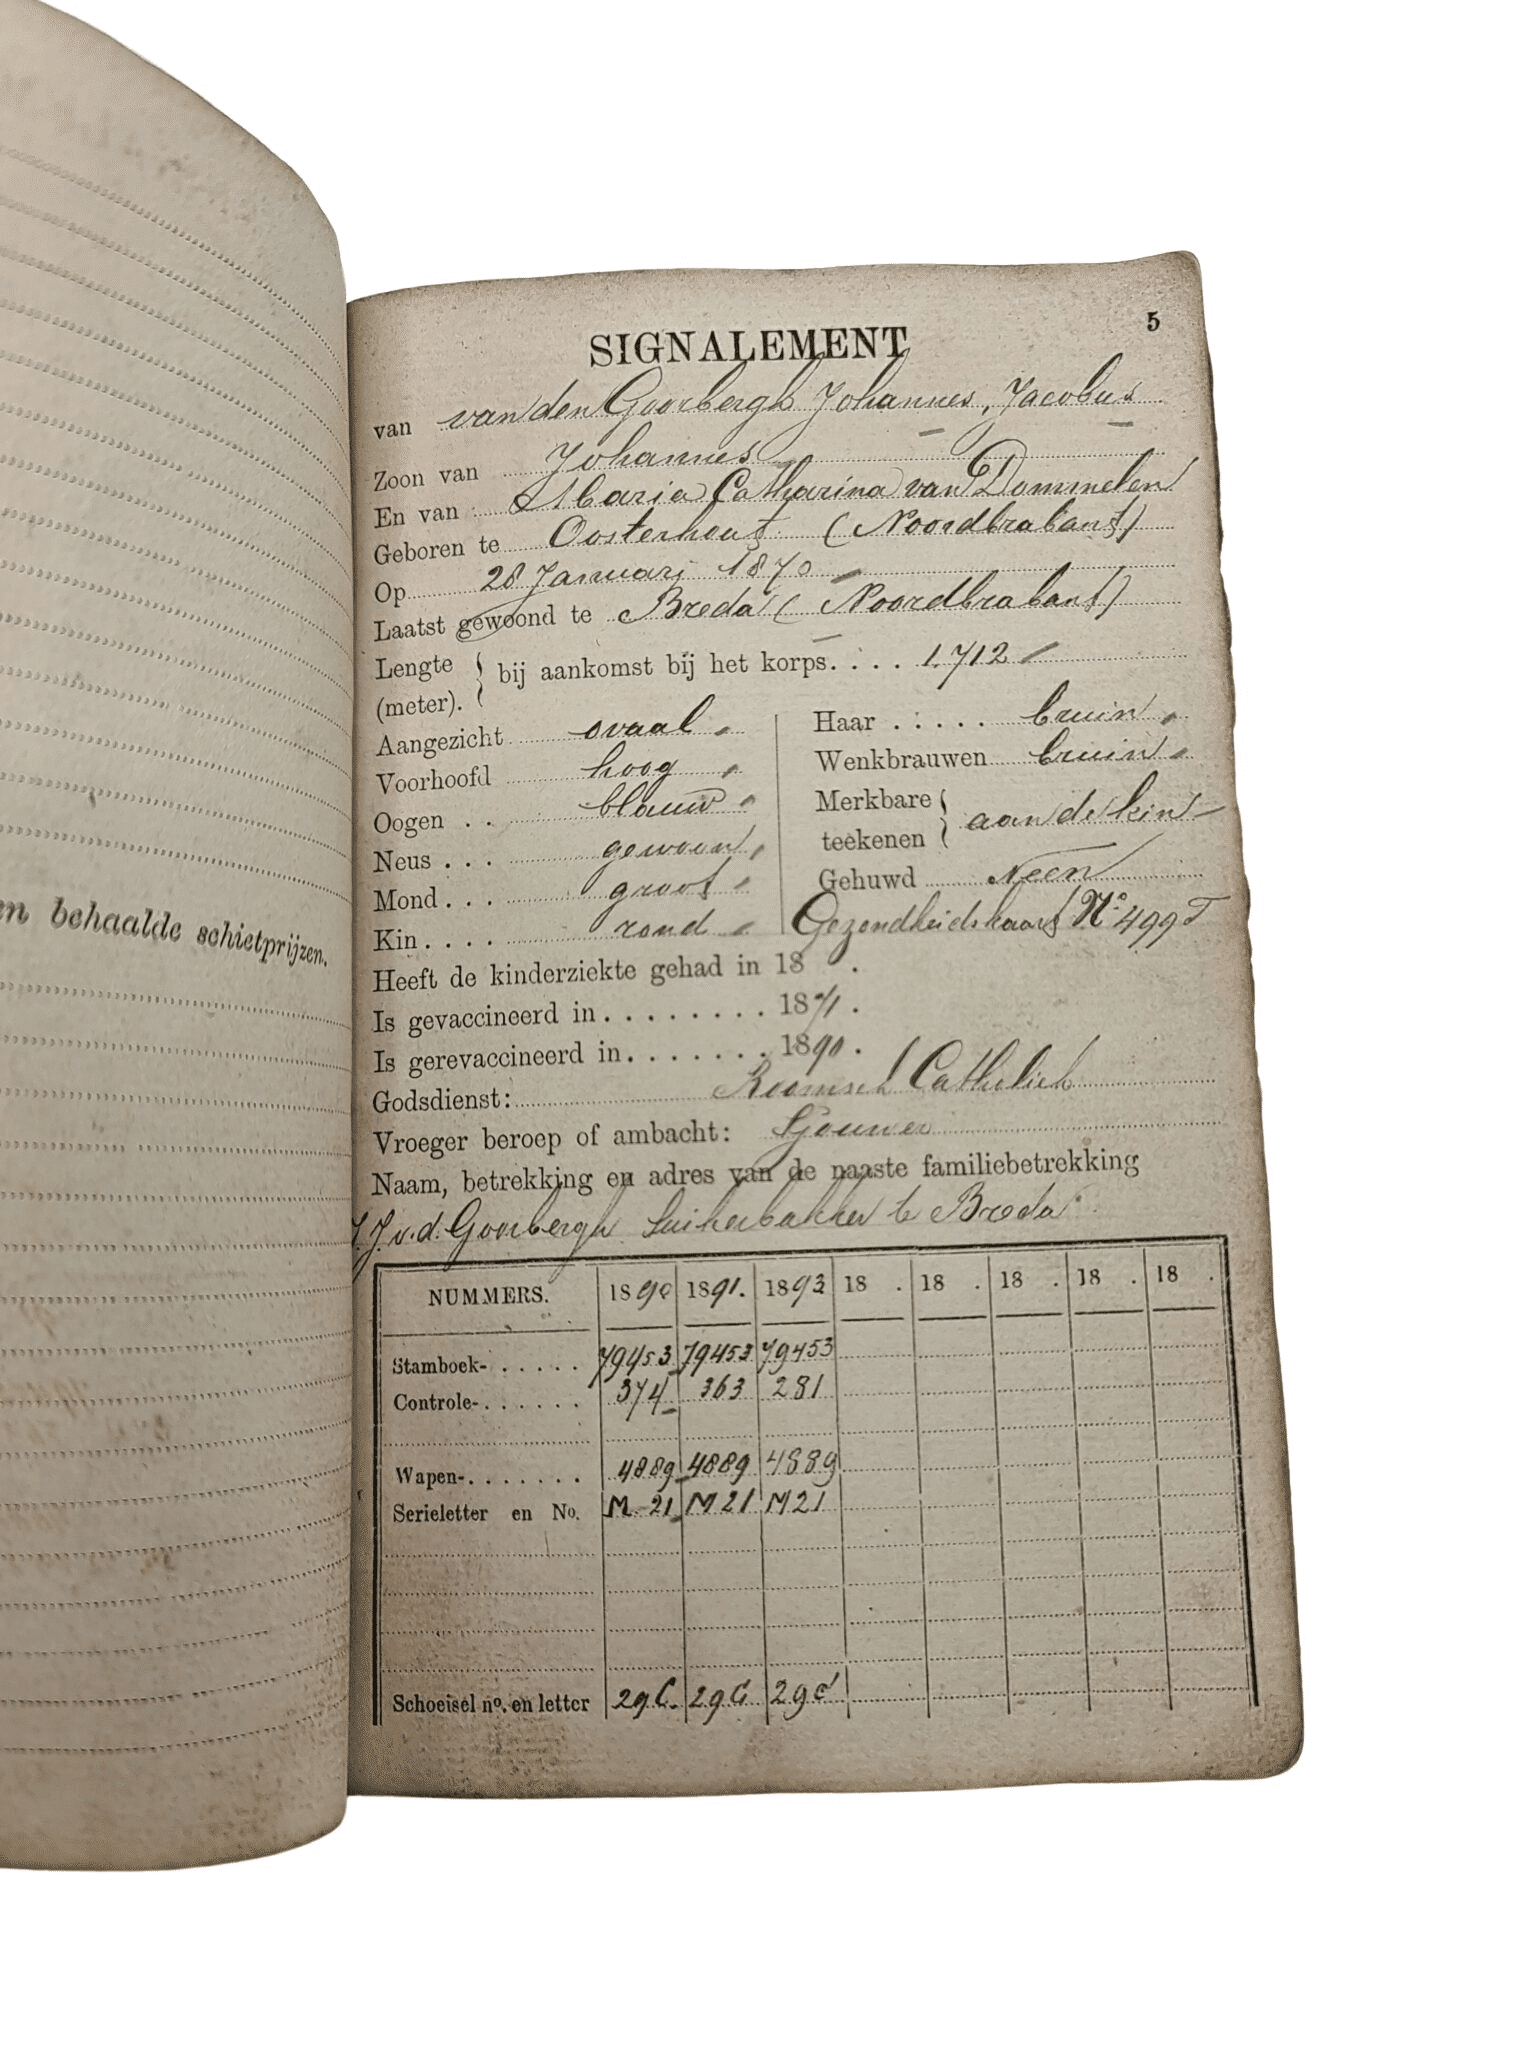 en behaalde schietprijzen.
5
SIGNALEMENT
van van den Goorbergh Johannes, Jacobus
Zoon van Johannes
En van Maria Catharina van Dommelen
Geboren te Oosterhout (Noordbrabant)
Op 28 Januari 1870
Laatst gewoond te Breda (Noordbrabant)
Lengte (meter). { bij aankomst bij het korps. . . . 1.712
Aangezicht ovaal
Voorhoofd hoog
Oogen . . blauw
Neus . . . gewoon
Mond . . . groot
Kin . . . . rond
Haar . . . . . bruin
Wenkbrauwen bruin
Merkbare teekenen } aan de kin
Gehuwd Neen
Gezondheidskaart No 499
Heeft de kinderziekte gehad in 18 .
Is gevaccineerd in . . . . . . . . 1871.
Is gerevaccineerd in . . . . . . . 1890.
Godsdienst: Roomsch Catholiek
Vroeger beroep of ambacht:
Naam, betrekking en adres van de naaste familiebetrekking
J. J. v. d. Goorbergh Suikerbakker te Breda
NUMMERS. 1890 1891. 1893 18 . 18 . 18 . 18 . 18 .
Stamboek- . . . . . 79453 79453 79453
Controle- . . . . . . 374 363 281
Wapen- . . . . . . . 4889 4889 4889
Serieletter en No. M 21 M 21 M 21
Schoeisel no. en letter 29 C. 29 C 29 C